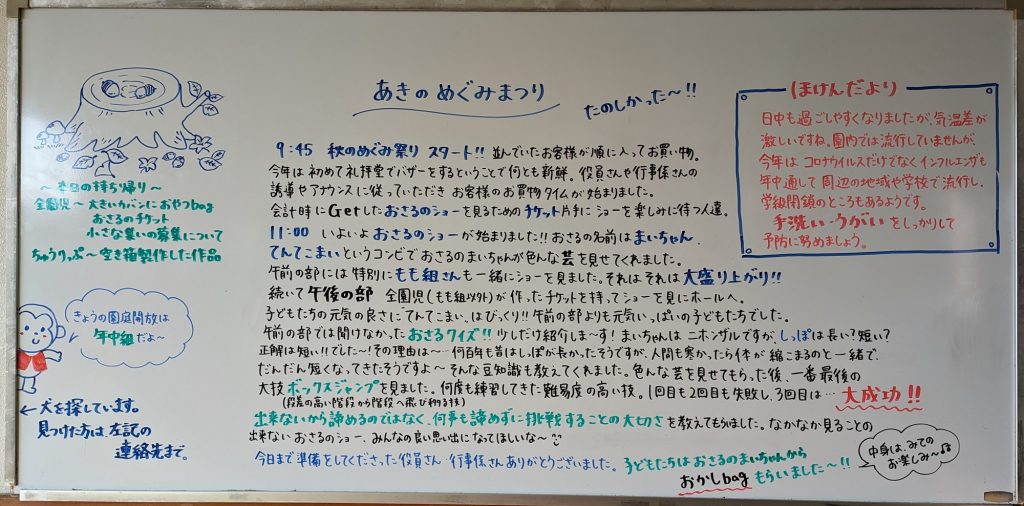 あきの めぐみまつり
たのしかった〜!!
9:45 秋のめぐみ祭り スタート!! 並んでいたお客様が順に入ってお買い物。
今年は初めて礼拝堂でバザーをするということで何とも新鮮。役員さんや行事係さんの
誘導やアナウンスに従っていただき お客様のお買物タイムが始まりました。
会計時にGetしたおさるのショーを見るためのチケット片手にショーを楽しみに待つ人達。
11:00 いよいよ おさるのショーが始まりました!! おさるの名前は まいちゃん。
てんてこまいというコンビでおさるのまいちゃんが色んな芸を見せてくれました。
午前の部には特別にもも組さんも一緒にショーを見ました。それはそれは 大盛り上がり!!
続いて 午後の部 全園児(もも組以外)が作ったチケットを持ってショーを見にホールへ。
子どもたちの元気の良さにてんてこまい、はびっくり!! 午前の部よりも元気いっぱいの子どもたちでした。
午前の部では聞けなかった おさるクイズ!! 少しだけ紹介しま〜す! まいちゃんは ニホンザルですが、しっぽは長い?短い?
正解は短い!!でした〜! その理由は〜… 何百年も昔はしっぽが長かったそうですが、人間も寒かったら体が縮こまるのと一緒で、
だんだん短くなってきたそうですよ〜 そんな豆知識も教えてくれました。色んな芸を見せてもらった後、一番最後の
大技 ボックスジャンプを見ました。何度も練習してきた難易度の高い技。1回目も2回目も失敗し、3回目は… 大成功!!
(段差の高い階段から階段へ飛び移る技)
出来ないから諦めるのではなく、何事も諦めずに挑戦することの大切さを教えてもらいました。なかなか見ることの
出来ない おさるのショー、みんなの良い思い出になってほしいな〜
今日まで準備をしてくださった役員さん・行事係さんありがとうございました。子どもたちは おさるのまいちゃんから
おかしbag もらいました〜!!
中身は、みての
お楽しみ〜♪
〜本日の持ち帰り〜
全園児〜大きいカバンにおやつbag
おさるのチケット
小さな集いの募集について
ちゅうりっぷ〜空き箱製作した作品
きょうの園庭開放は
年中組だよ〜
←犬を探しています。
見つけた方は、左記の
連絡先まで。
ほけんだより
日中も過ごしやすくなりましたが、気温差が
激しいですね。園内では流行していませんが、
今年は コロナウイルスだけでなくインフルエンザも
年中通して 周辺の地域や学校で流行し、
学級閉鎖のところもあるようです。
手洗い・うがいをしっかりして
予防に努めましょう。